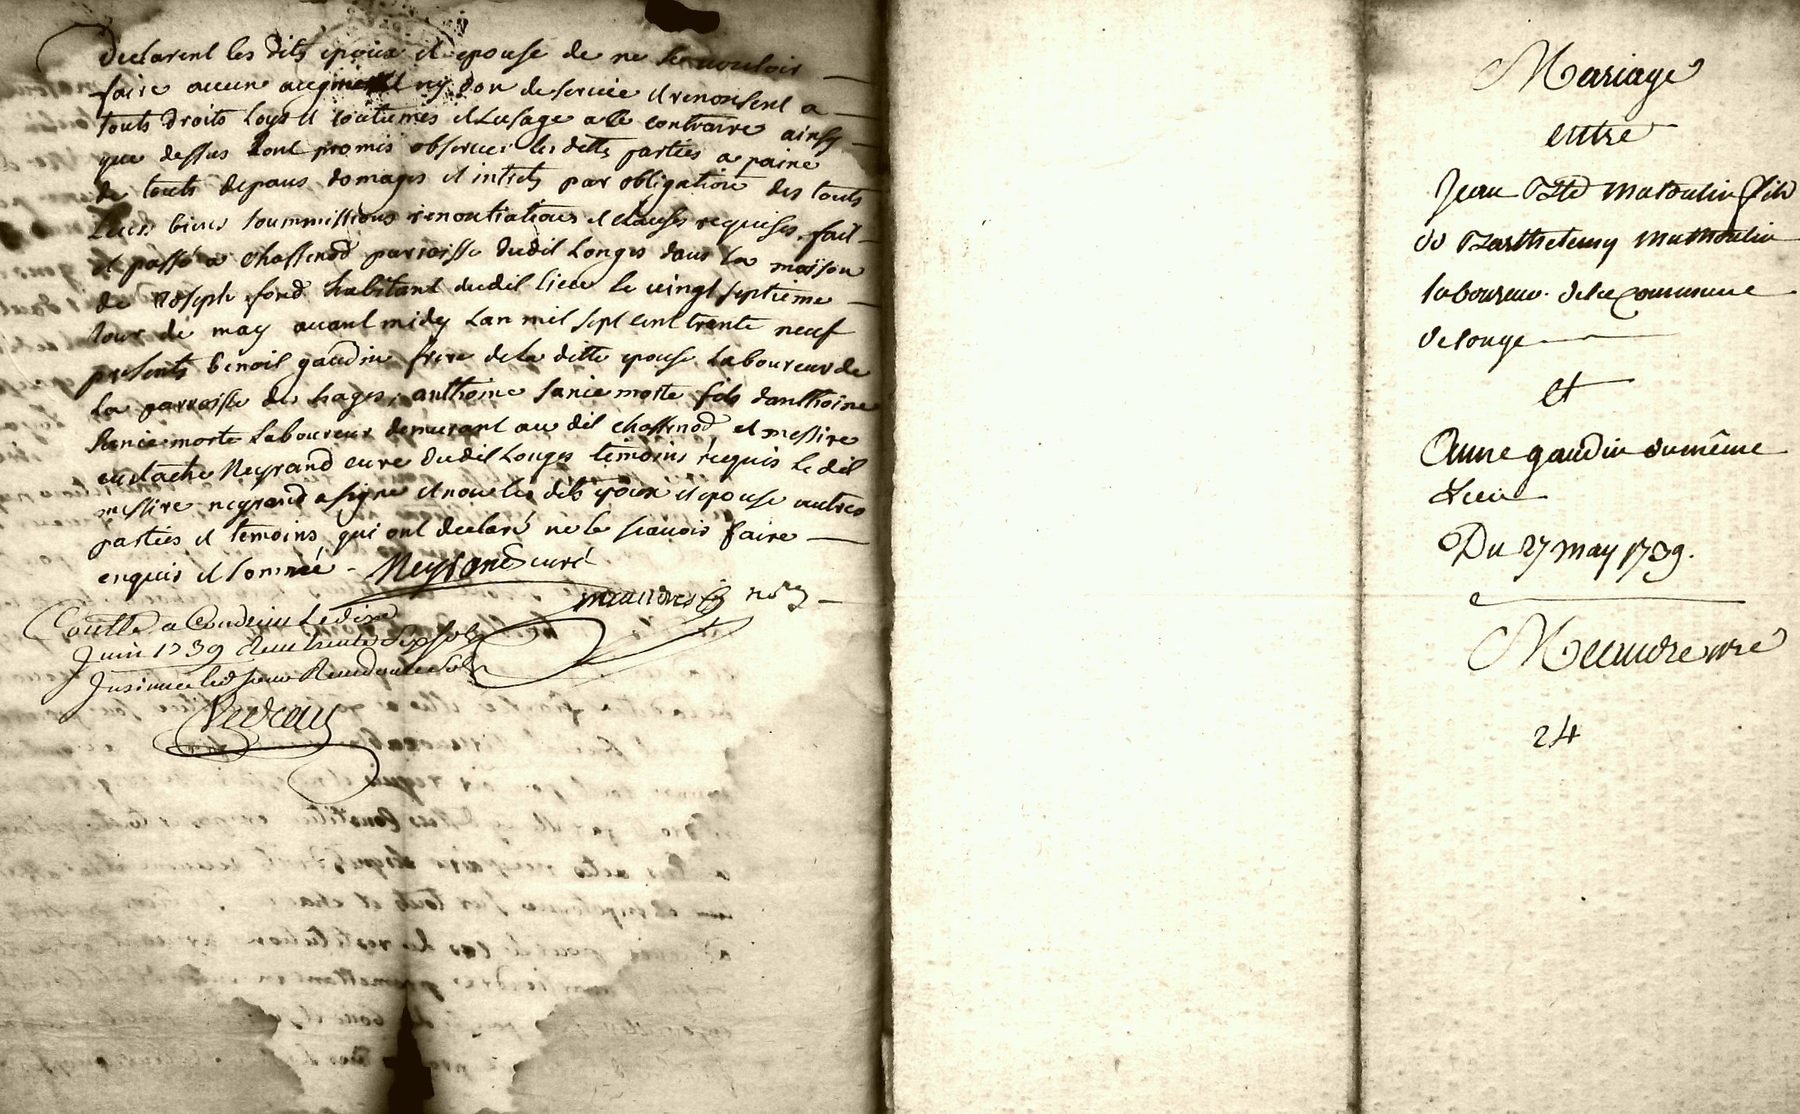 declarent les dits epoux et epouse de ne se vouloir
faire aucun augment ny don de service et renonsent a
touts droits Loys et coutumes et Lusage a ce contraire ainsy
que dessus Lont promis observer les dittes parties a paine
de touts depans domages et intrets par obligation des touts
Leurs biens soummissions renontiations et clauses requises, fait
et passé a Chassenod parroisse dudit Longes dans La maison
de Joseph fond habitant dudit lieu le vingt septieme
Jour de may avant midy Lan mil sept cent trente neuf
presents benoit gaudin frere de la ditte epouse Laboureur de
La parroisse des hayes, anthoine Janiemorte fils danthoine
Janiemorte Laboureur demurant au dit chassenod et messire
eustache Neyrand curé dudit Longes temoins requis Le dit
messire neyrand a signe et non les dits epoux et epouse autres
parties et temoins qui ont declaré ne le scavoir faire
enquis et sommé - Neyrand curé
Coutllé a Condrieu Le dix
Juin 1739
Mariage
entre
Jean Bte matoulin fils
de Barthelemy mathoulin
laboureur de la Commune
de longe
et
Anne gaudin du même
Lieu
Du 27 may 1739.
24